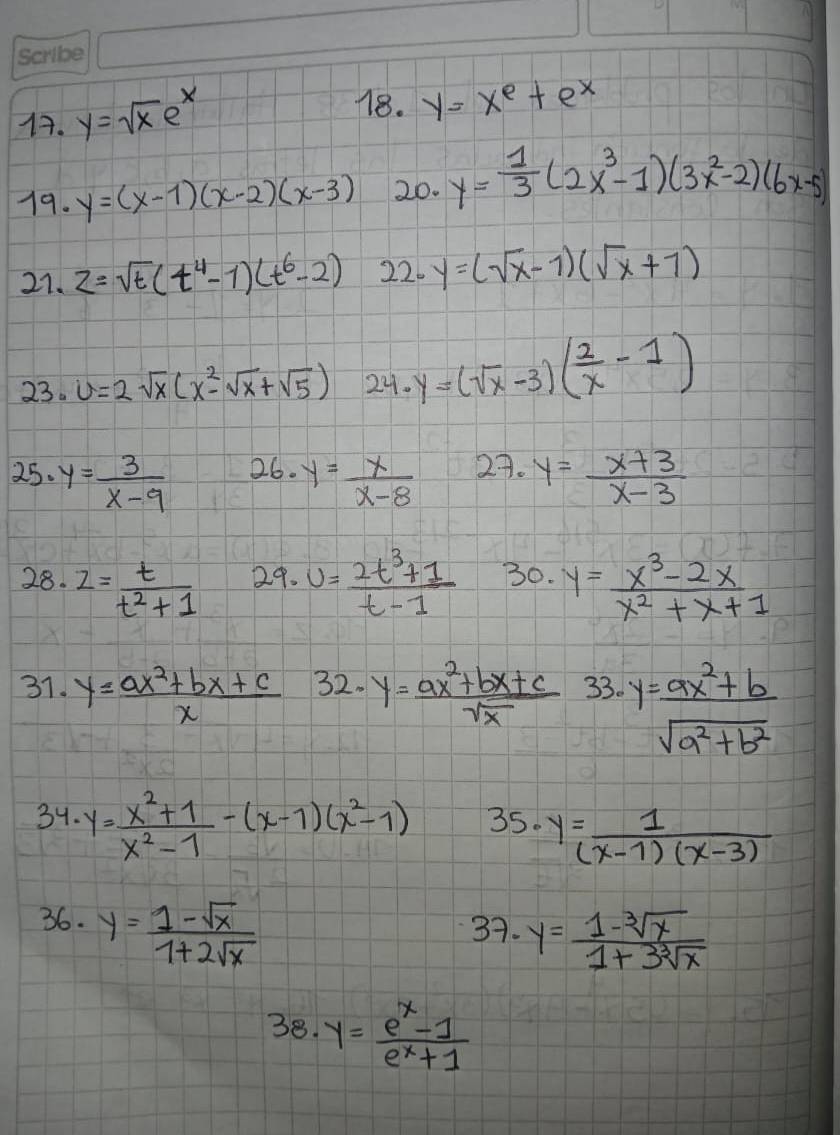 Scribe
17. y = √x e^x 18. y = x^e + e^x
19. y = (x-1)(x-2)(x-3) 20. y = 1/3 (2x^3-1)(3x^2-2)(6x-5)
21. z = √t (t^4-1)(t^6-2) 22. y = (√x-1)(√x+1)
23. U = 2√x (x^2-√x+√5) 24. y = (√x-3)(2/x - 1)
25. y = 3/(x-9) 26. y = x/(x-8) 27. y = (x+3)/(x-3)
28. z = t/(t^2+1) 29. U = (2t^3+1)/(t-1) 30. y = (x^3-2x)/(x^2+x+1)
31. y = (ax^2+bx+c)/x 32. y = (ax^2+bx+c)/√x 33. y = (ax^2+b)/√(a^2+b^2)
34. y = (x^2+1)/(x^2-1) - (x-1)(x^2-1) 35. y = 1/((x-1)(x-3))
36. y = (1-√x)/(1+2√x) 37. y = (1-∛x)/(1+3∛x)
38. y = (e^x-1)/(e^x+1)